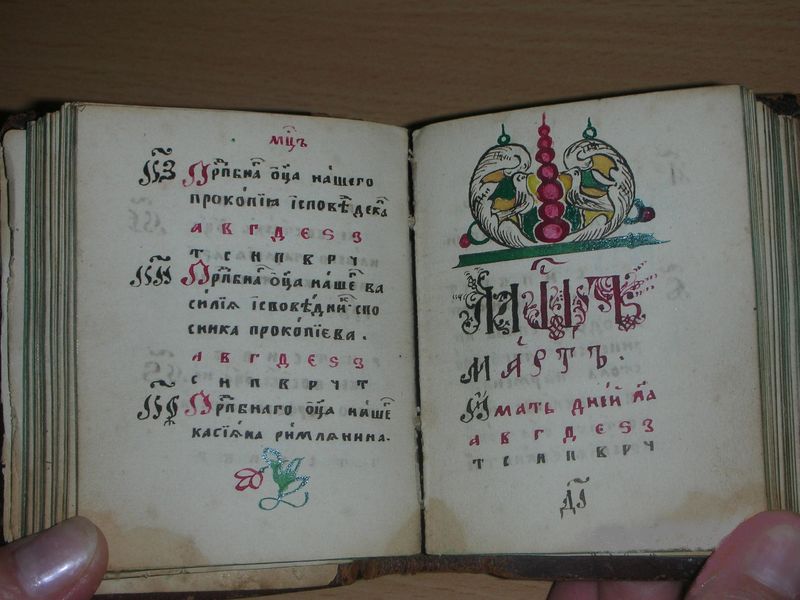 мц҃ъ
к҃з Прпⷣбнаⷢ ѻц҃а на́шего
прокопі́ѧ і҆сповѣ́декⷶ
а в г д є ѕ з
т с н п в р ч
к҃и Прпⷣбнаⷢ ѻц҃а на́шеⷢ ва
си́лїѧ і҆сповѣ́дниⷦ спо
сника прокопі́ева .
а в г д є ѕ з
с н п в р ч т
к҃ѳ Прпⷣбнаго ѻц҃а на́шеⷢ
касїѧ́на ри́млѧнина .
мц҃ъ
ма́ртъ .
И҆мать дне́й л҃а
а в г д є ѕ з
т с н п в р ч
д҃і